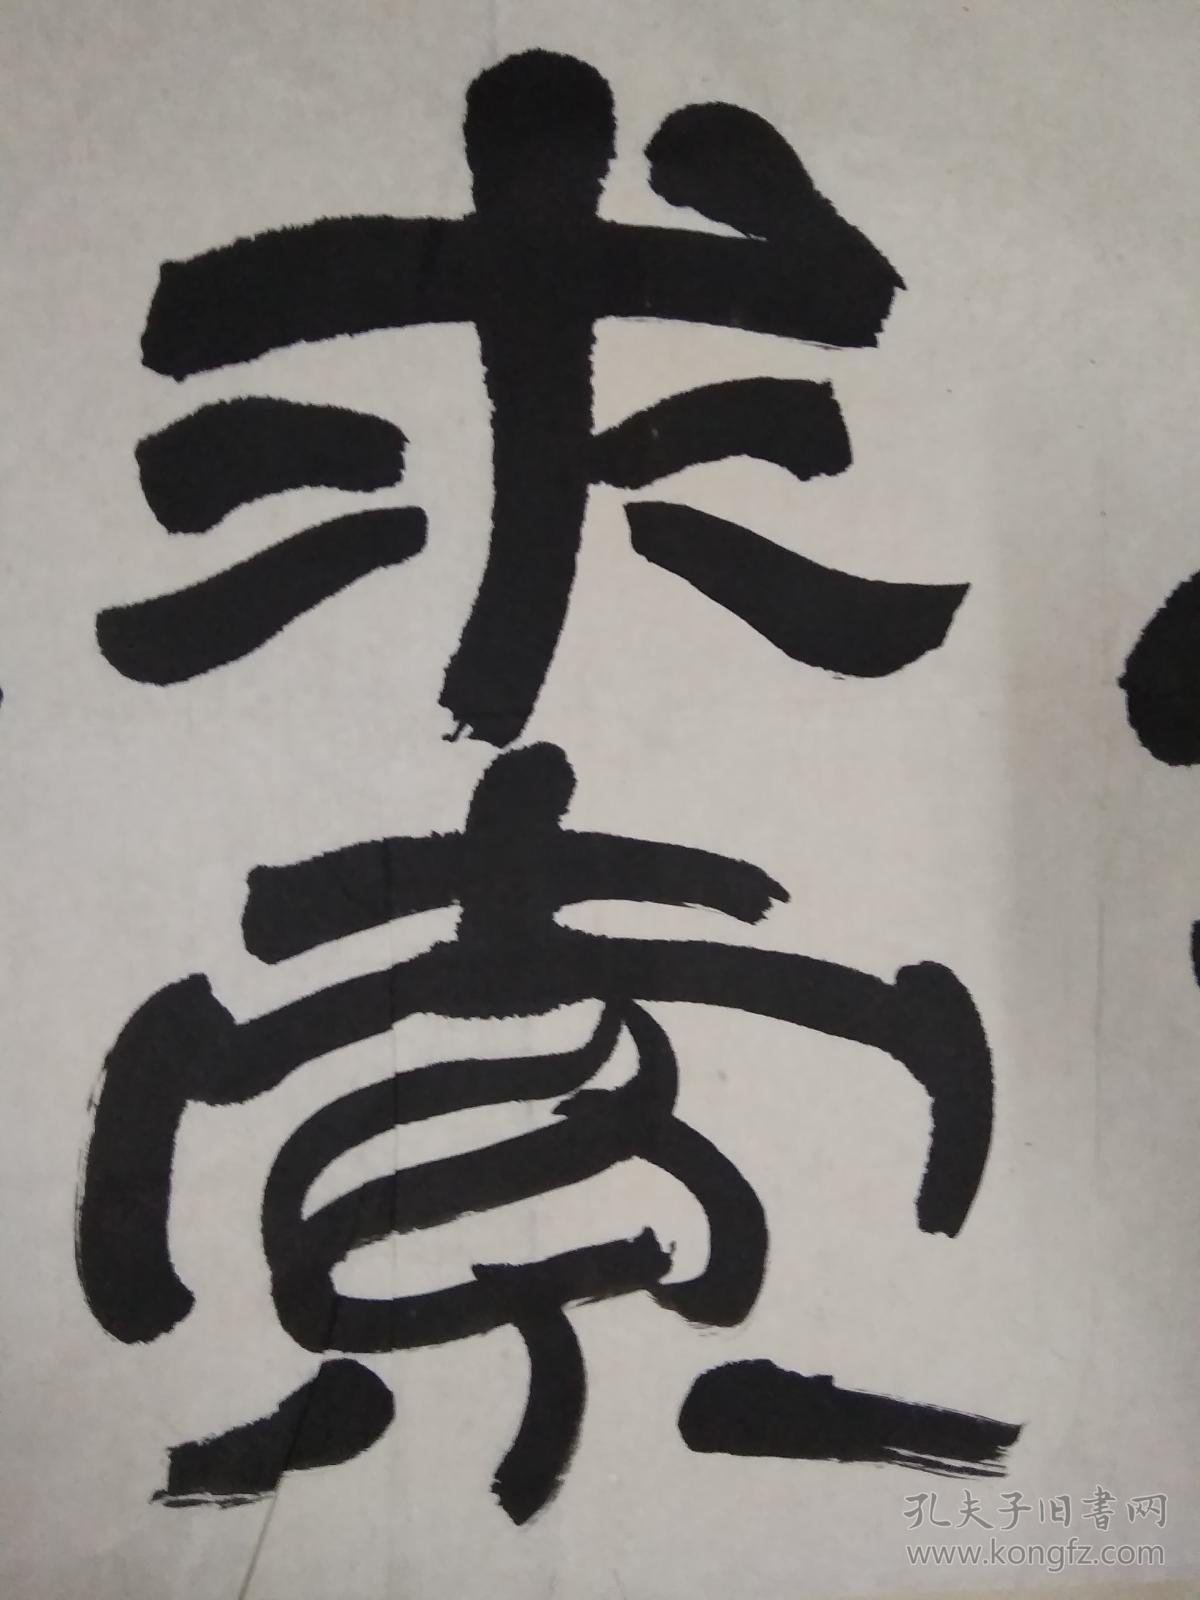 求
索
孔夫子旧書网
www.kongfz.com